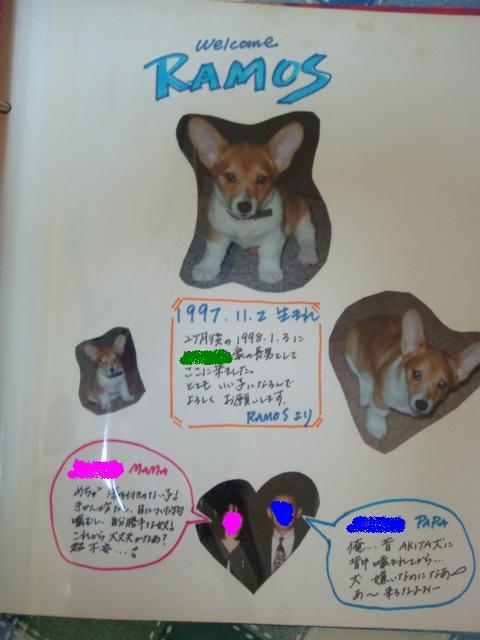 Welcome
RAMOS
1997.11.2 生まれ
2ヶ月後の1998.1.3に
家の長男として
ここに来ました。
とてもいい子になるんで
よろしくお願いします。
RAMOSより
MAMA
めちゃ
噛むし、自分勝手な奴!
これから大丈夫かなあ?
超不安...!
PAPA
俺...昔AKITA犬に
背中噛まれてから...
犬嫌いなのになあ〜
あ〜来るなよおー